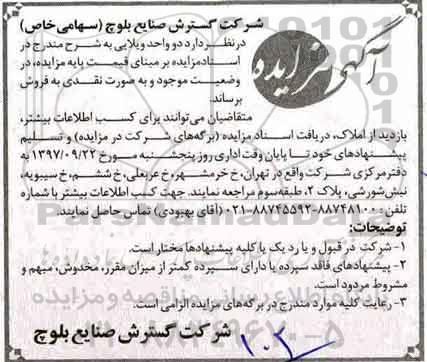 آگهی مزایده
شرکت گسترش صنایع بلوچ (سهامی خاص)
درنظر دارد دو واحد ویلایی به شرح مندرج در
اسناد مزایده بر مبنای قیمت پایه مزایده، در
وضعیت موجود و به صورت نقدی به فروش
برساند.
متقاضیان می‌توانند برای کسب اطلاعات بیشتر،
بازدید از املاک، دریافت اسناد مزایده (برگه‌های شرکت در مزایده) و تسلیم
پیشنهادهای خود تا پایان وقت اداری روز پنجشنبه مورخ ۱۳۹۷/۰۹/۲۲ به
دفتر مرکزی شرکت واقع در تهران، خ خرمشهر، خ عربعلی، خ ششم، خ سیبویه،
نبش شورشی، پلاک ۲، طبقه سوم مراجعه نمایند. جهت کسب اطلاعات بیشتر با شماره
تلفن: ۸۸۷۴۸۱۰۰-۸۸۷۴۵۵۹۲-۰۲۱ (آقای بهبودی) تماس حاصل نمایند.
توضیحات:
۱- شرکت در قبول و یا رد یک یا کلیه پیشنهادها مختار است.
۲- پیشنهادهای فاقد سپرده یا دارای سپرده کمتر از میزان مقرر، مخدوش، مبهم و
مشروط مردود است.
۳- رعایت کلیه موارد مندرج در برگه‌های مزایده الزامی است.
شرکت گسترش صنایع بلوچ